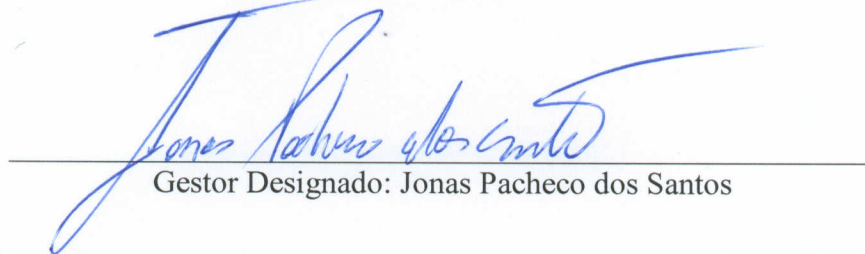 Jonas Pacheco dos Santos
Gestor Designado: Jonas Pacheco dos Santos